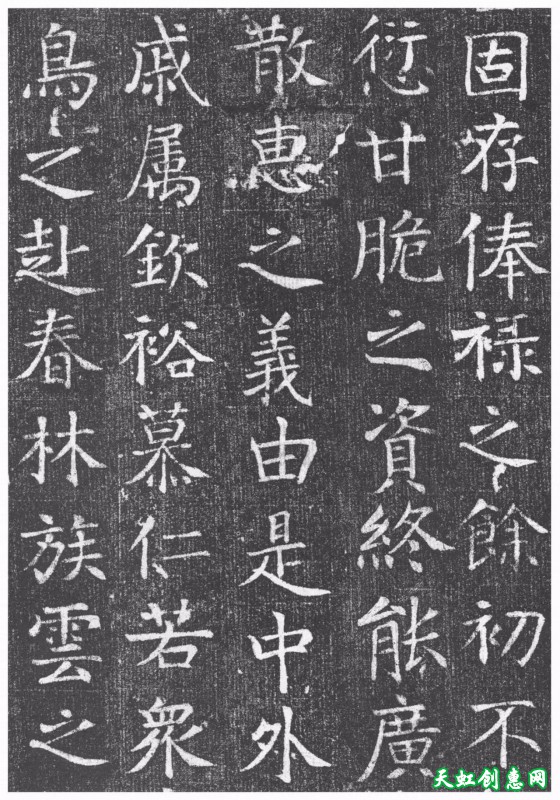 固存俸禄之餘初不
愆甘脆之資終能廣
散惠之義由是中外
戚属欽裕慕仁若衆
鳥之赴春林族雲之
天虹创惠网